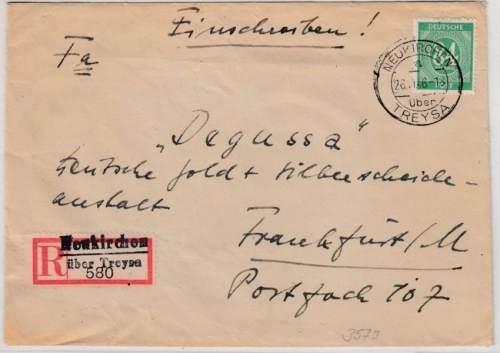 Einschreiben!
Fa
DEUTSCHE
NEUKIRCHEN
a
über
TREYSA
"Degussa"
Deutsche Gold + Silberscheide-
anstalt
Frankfurt/M
Postfach 107
R
Neukirchen
über Treysa
580
3579